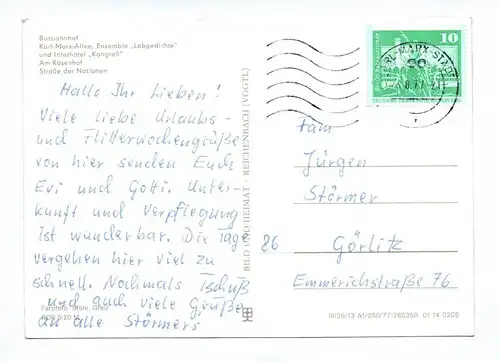 Busbahnhof
Karl-Marx-Allee, Ensemble „Lobgedichte"
und Interhotel „Kongreß"
Am Rosenhof
Straße der Nationen
Hallo Ihr Lieben!
Viele liebe Urlaubs-
und Flitterwochengrüße
von hier senden Euch
Evi und Gotti. Unter-
kunft und Verpflegung
ist wunderbar. Die Tage
vergehen hier viel zu
schnell. Nochmals Tschüß
und auch viele Grüße
an alle Störmers
Farbfoto: Greiz
BILD UND HEIMAT · REICHENBACH (VOGTL)
III/26/13 A1/250/77-260350 01 14 0205
10
KARL-MARX-STADT
Fam
Jürgen
Störmer
86 Görlitz
Emmerichstraße 76